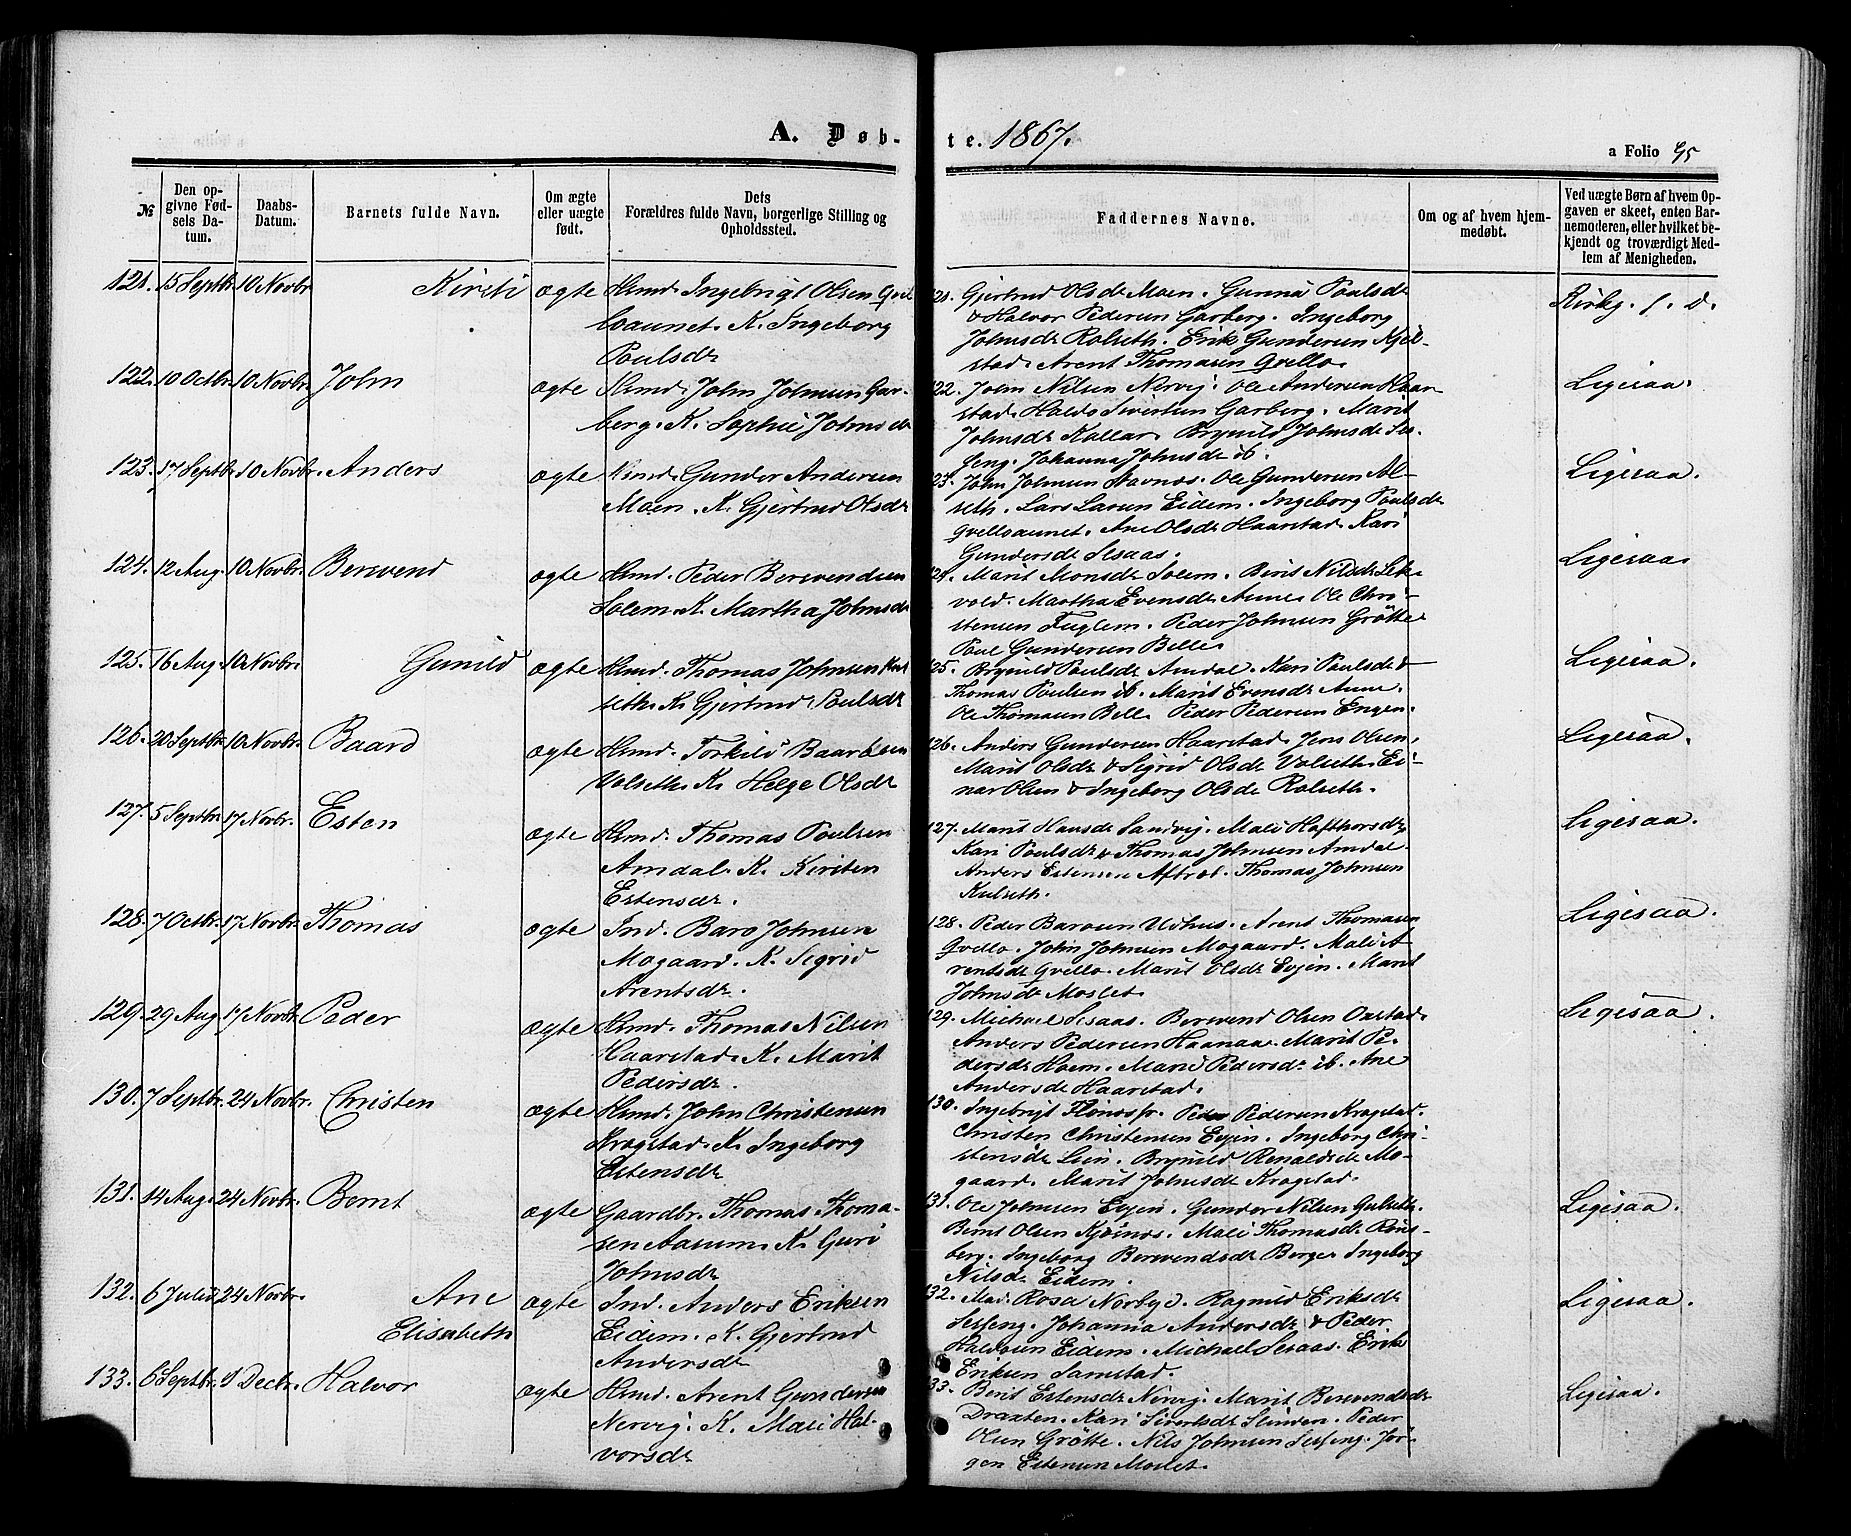 A. Døbte. 1867.
a Folio 95
№
Den opgivne Fødsels Datum.
Daabs-Datum.
Barnets fulde Navn.
Om ægte eller uægte født.
Dets Forældres fulde Navn, borgerlige Stilling og Opholdssted.
Faddernes Navne.
Om og af hvem hjemmedøbt.
Ved uægte Børn af hvem Opgaven er skeet, enten Barnemoderen, eller hvilket bekjendt og troværdigt Medlem af Menigheden.
121. 15 Septbr 10 Novbr Kirsti ægte Hmd. Ingebrigt Olsen
K. Ingeborg
Poulsdr
121. Gjertrud Olsdr Moen. Gunild Poulsdr
& Halvor Pedersen Garberg. Ingeborg
Johnsdr Rolseth. Erik Gundersen Kjel-
stad. Arent Thomasen Gvello.
Kirkj. s. d.
122. 10 Octbr. 10 Novbr. John ægte Hmd. John Johnsen Gar-
berg. K. Sophie Johnsdr
122. John Nilsen Nervig. Ole Andersen Haar
stad. Haldo Sivertsen Garberg. Marit
Johnsdr Kallar. Brynild Johnsdr Ses-
seng. Johanna Johnsdr ib.
Ligesaa.
123. 17 Septbr 10 Novbr. Anders ægte Hmd. Gunder Andersen
Moen. K. Gjertrud Olsdr
123. John Johnsen Stavnos. Ole Gundersen Al-
seth. Lars Larsen Eidem. Ingeborg Poulsdr
Gvellsaunet. Ane Olsdr Haarstad. Kari
Gundersdr Sesaas.
Ligesaa.
124. 12 Aug. 10 Novbr. Berevend ægte Hmd. Peder Berevendsen
Solem. K. Martha Johnsdr
124. Marit Monsdr Solem. Berit Nilsdr Lek-
vold. Martha Evensdr Aune. Ole Chri-
stensen Fuglem. Peder Johnsen Grøtte
Poul Gundersen Belle.
Ligesaa
125. 16 Aug. 10 Novbr. Gunild ægte Hmd. Thomas Johnsen Kul
seth. K. Gjertrud Poulsdr
125. Brynild Poulsdr Amdal. Kari Poulsdr &
Thomas Poulsen ib. Marit Evensdr Aune.
Ole Thomasen Bell. Peder Pedersen Engen.
Ligesaa.
126. 20 Septbr. 10 Novbr. Baard ægte Hmd. Torkild Baardsen
Volseth. K. Helge Olsdr
126. Anders Gundersen Haarstad. Jens Olsen,
Marit Olsdr & Sigrid Olsdr Volseth. Ei-
nar Olsen & Ingeborg Olsdr Rolseth.
Ligesaa.
127. 5 Septbr. 17 Novbr. Esten ægte Hmd. Thomas Poulsen
Amdal. K. Kirsten
Estensdr.
127. Marit Hansdr Sandvig. Mali Hafthorsdr.
Kari Poulsdr & Thomas Johnsen Amdal
Anders Estensen Aftret. Thomas Johnsen
Kulseth.
Ligesaa.
128. 7 Octbr. 17 Novbr. Thomas ægte Ind. Baro Johnsen
Mogaard. K. Sigrid
Arentsdr.
128. Peder Barosen Udhus. Arent Thomasen
Gvello. John Johnsen Mogaard. Mali A-
rentsdr Gvello. Marit Olsdr Evjen. Marit
Johnsdr Moslet.
Ligesaa.
129. 29 Aug. 17 Novbr. Peder ægte Hmd. Thomas Nilsen
Haarstad. K. Marit
Pedersdr.
129. Michael Sesaas. Berevend Olsen Onstad.
Anders Pedersen Haanaa. Marit Pe-
dersdr Hoem. Marie Pedersdr ib. Ane
Andersdr Haarstad.
Ligesaa.
130. 7 Septbr. 24 Novbr. Christen ægte Hmd. John Christensen
Kragstad. K. Ingeborg
Estensdr
130. Ingebrigt Flønes fr. Peder Pedersen Kragstad.
Christen Christensen Evjen. Ingeborg Chri-
stensdr Lien. Brynild Renaldsdr Mo-
gaard. Marit Johnsdr Kragstad.
131. 14 Aug. 24 Novbr. Bernt ægte Gaardbr. Thomas Thoma-
sen Aasum. K. Guri
Johnsdr
131. Ole Johnsen Evjen. Gunder Nilsen Gulseth.
Bernt Olsen Kjøsnos. Mali Thomasdr Røns-
berg. Ingeborg Berevendsdr Berge. Ingeborg
Nilsdr Eidem.
Ligesaa.
132. 6 Juli 24 Novbr. Ane Elisabeth ægte Ind. Anders Eriksen
Eidem. K. Gjertrud
Andersdr
132. Mad. Rosa Norbye. Ragnild Eriksdr
Sesseng. Johanna Andersdr & Peder
Haldosen Eidem. Michael Sesaas. Erik
Eriksen Samstad.
Ligesaa.
133. 6 Septbr. 1 Decbr. Halvor ægte Hmd. Arent Gundersen
Nervig. K. Mali Hal-
vorsdr
133. Berit Estensdr Nervig. Marit Berevendsdr
Draxten. Kari Sivertsdr Slinden. Peder
Olsen Grøtte. Nils Johnsen Sesseng. Jør-
gen Estensen Moslet.
Ligesaa.